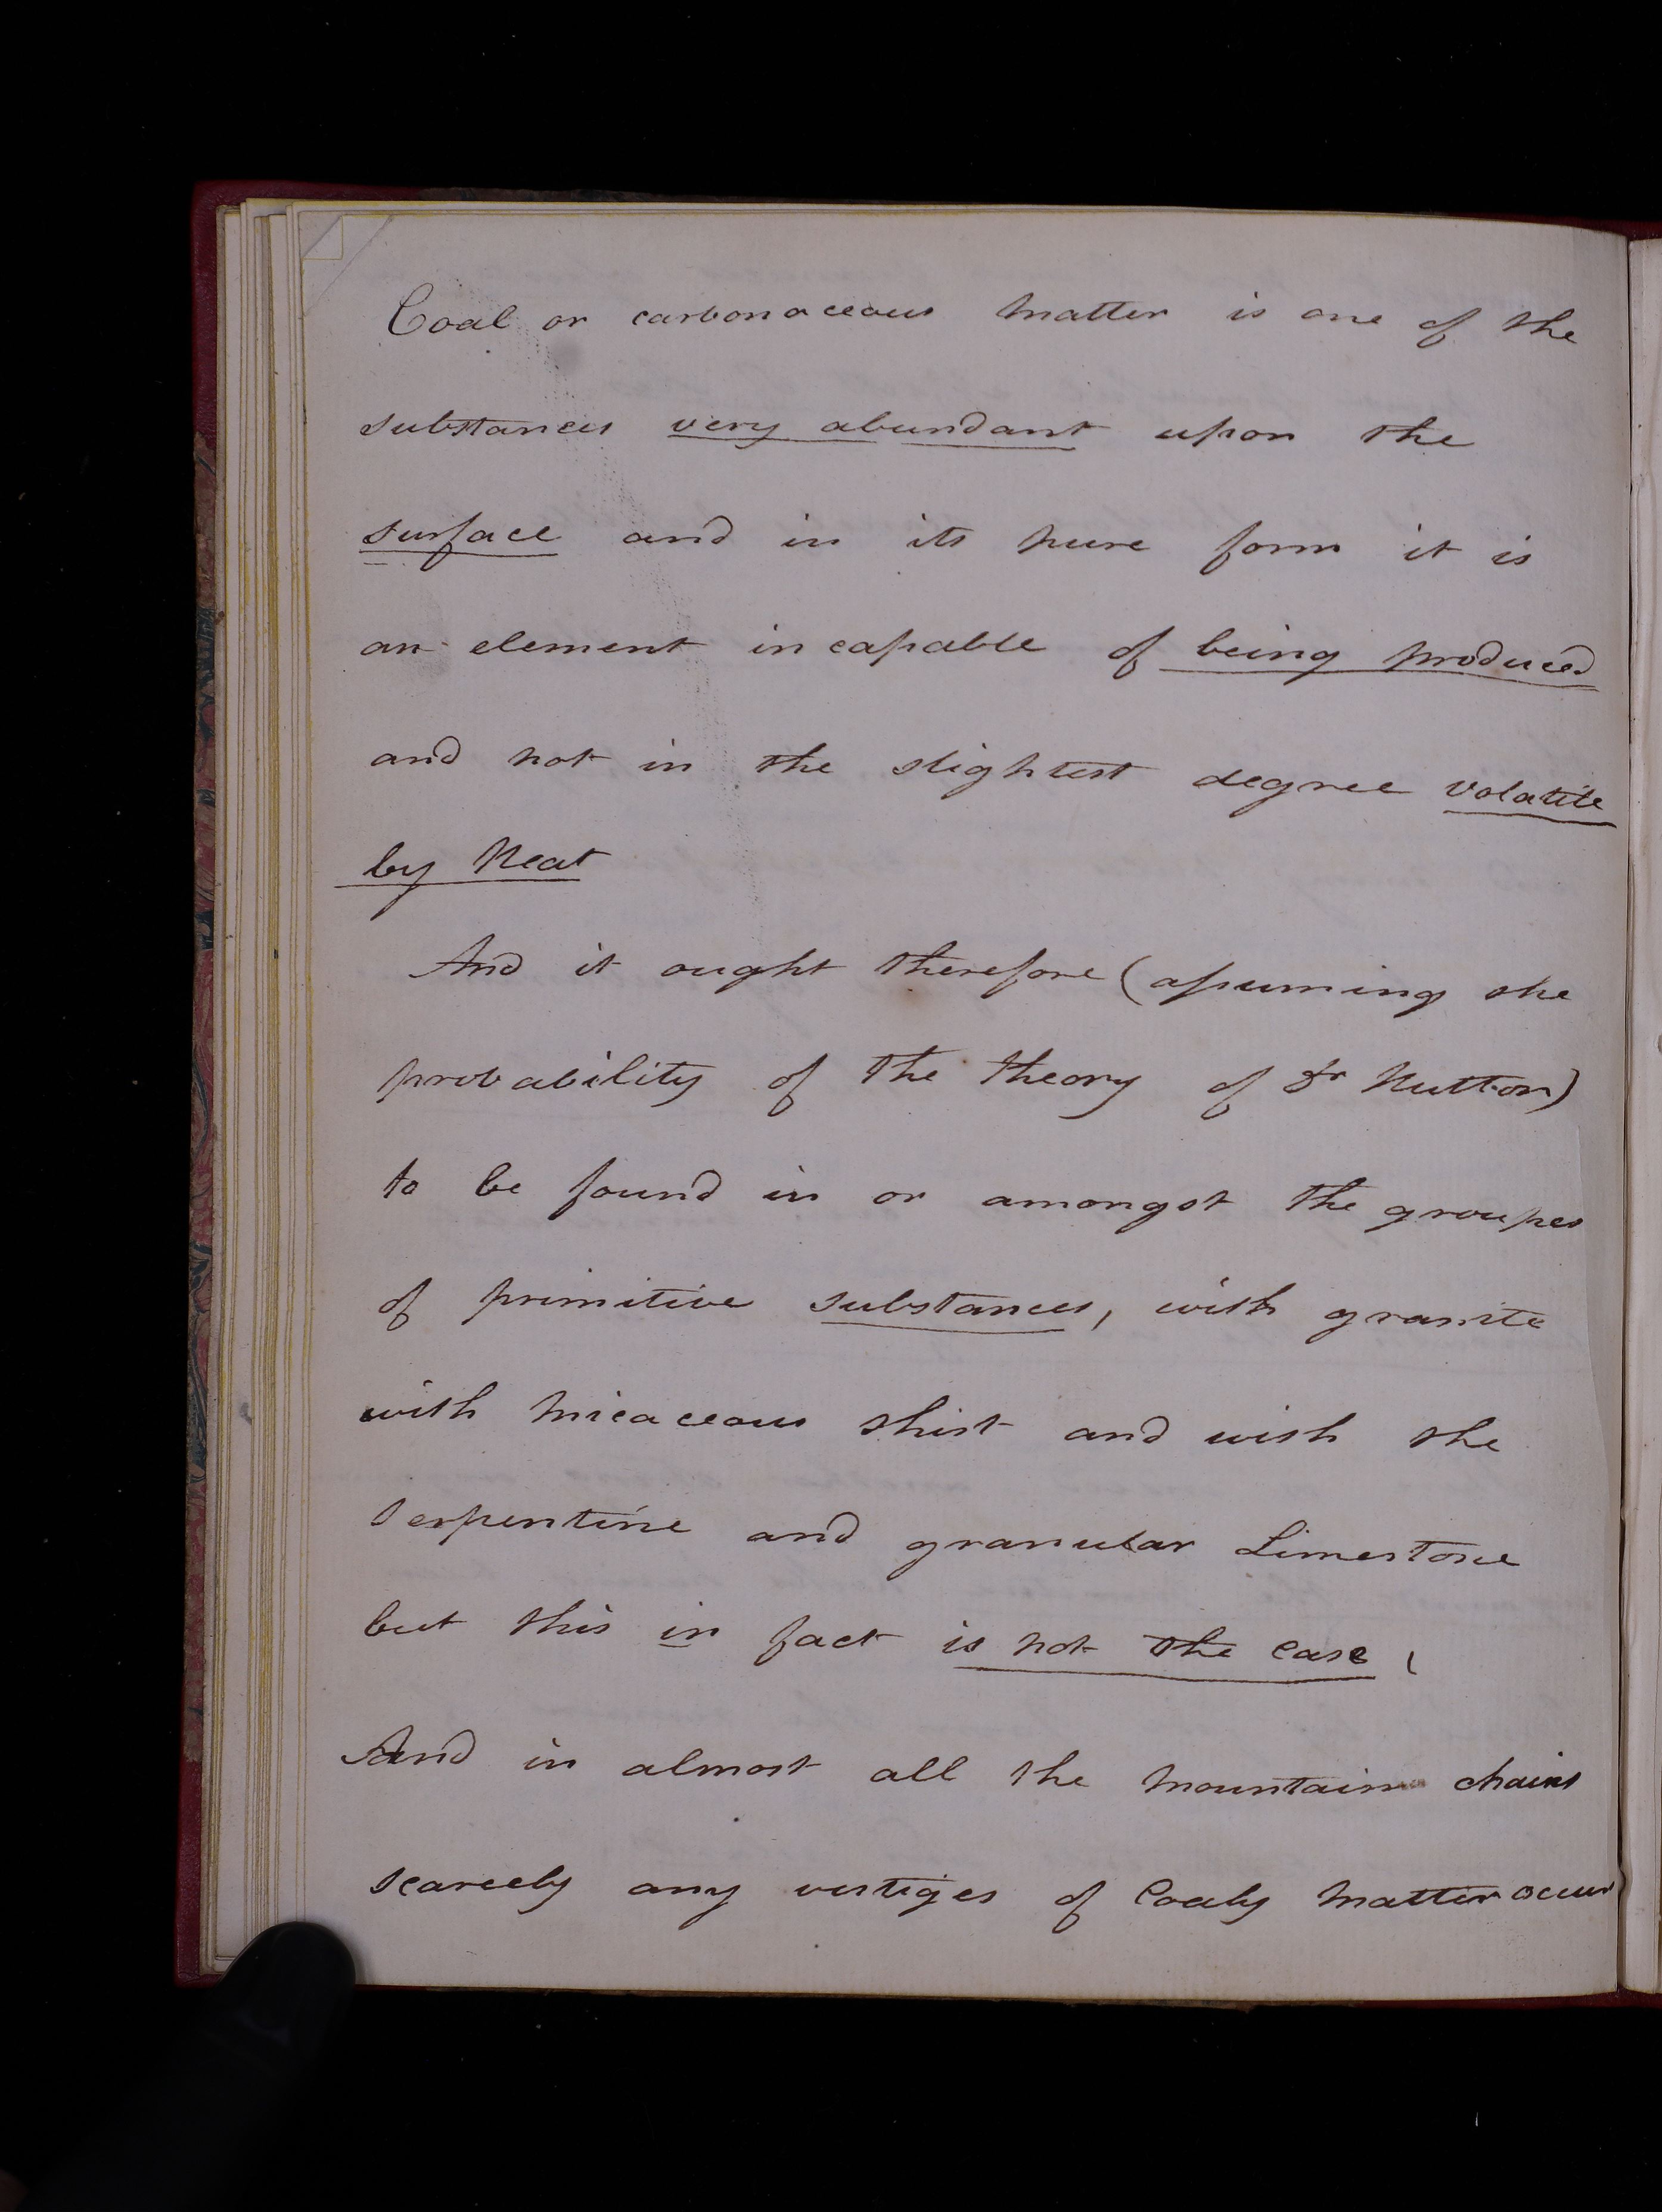 Coal or carbonaceous matter is one of the
substances very abundant upon the
surface and in its pure form it is
an element incapable of being produced
and not in the slightest degree volatile
by heat
And it ought therefore (assuming the
probability of the theory of Dr Hutton)
to be found in or amongst the groupes
of primitive substances, with granite
with micaceous shist and with the
serpentine and granular Limestone
but this in fact is not the case,
And in almost all the mountain chains
scarcely any vestiges of Coaly matter occur